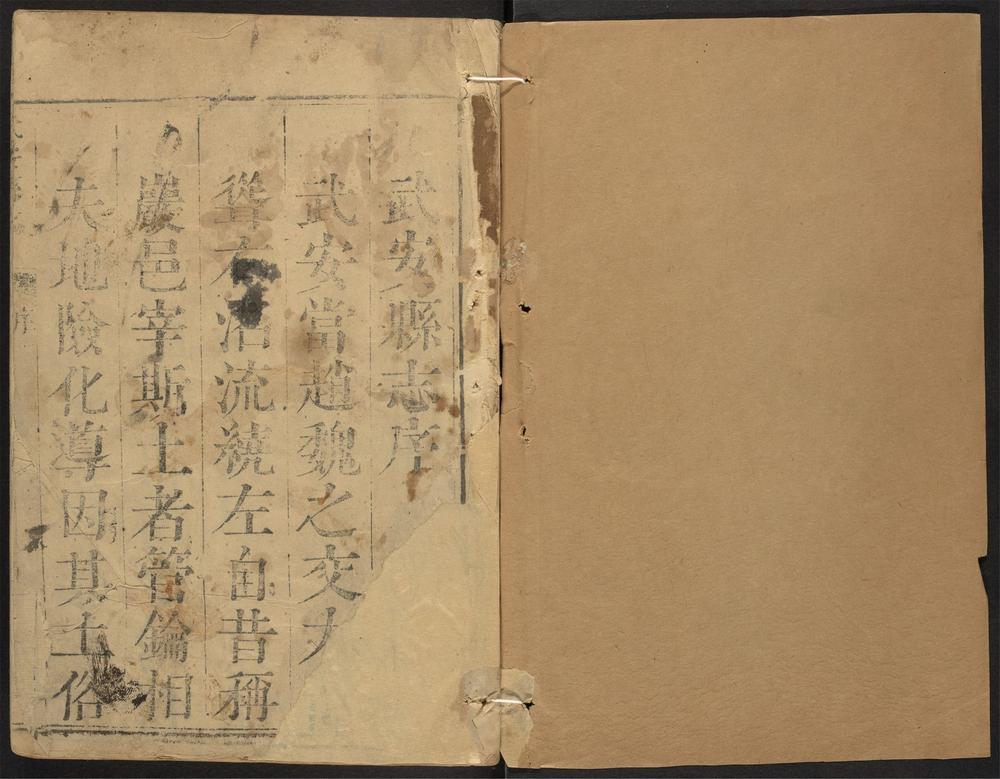 武安縣志序
武安當趙魏之交
聳右洺流繞左自昔稱
巖邑宰斯土者管鑰相
夫地險化導因其土俗
序